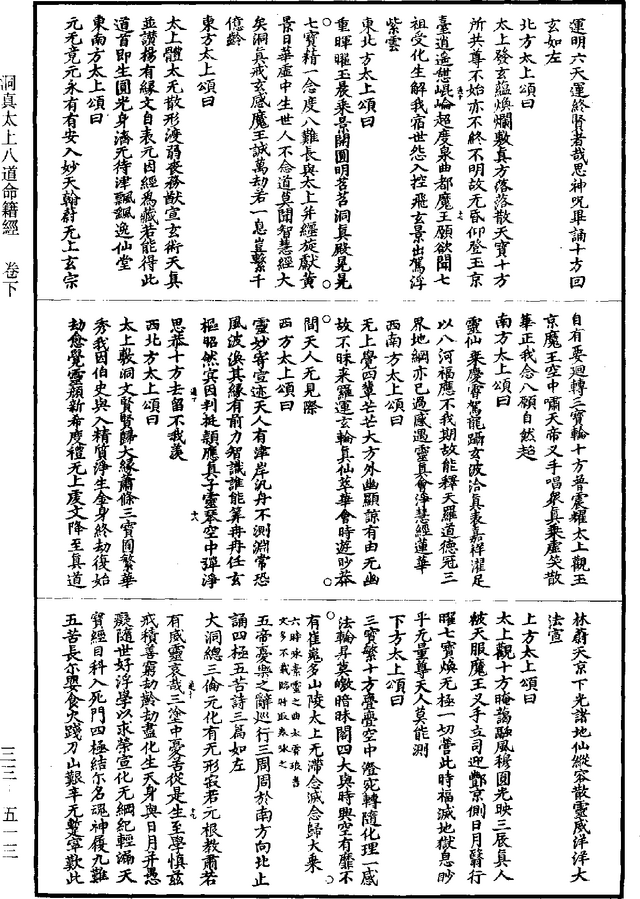 洞真太上八道命籍經　卷下
運明六天運終賢者哉思神呪畢誦十方回
玄如左
北方太上頌曰
太上發玄蘊煥爛敷真方落落散天寶十方
所共尊不始亦不終不明故无昏仰登玉京
臺逍遙崑崙超度泉曲都魔王願欲聞七
祖受化生解我宿世怨入控飛玄景出駕浮
紫雲
東北方太上頌曰
重暉曜玉晨乘景開圓明苕苕洞真殿晃晃
七寶精一念度八難長與太上并經旋獻黃
景日華虛中生世人不念道莫聞智慧經大
矣洞真戒玄感魔王誠萬劫若一息豈繫千
億齡
東方太上頌曰
太上體太无散形渡弱喪務猷宣玄術天真
並讚揚有緣文自表元因經為藏若能得此
道首即生圓光身濟无待津飄飄逸仙堂
東南方太上頌曰
元元竟元永有有安入妙天翰蔚无上玄宗
自有要迴轉三寶輪十方普震耀太上觀玉
京魔王空中嘯天帝叉手唱衆真乘虛笑散
華正我念八願自然超
南方太上頌曰
靈仙來慶會駕龍躡玄波洽真表嘉祥濯足
以八河福應不我期故能釋天羅道德冠三
界地網亦已過感遇靈真會淨慧經蓮華
西南方太上頌曰
无上覺四輩芒芒大方外幽顯諒有由无幽
故不昧來羅運玄輪真仙萃華會時遊眇莽
間天人无見際
西方太上頌曰
靈妙寄宣迹天人有津岸汎舟不測淵常恐
風波渙其緣有前力智識誰能筭冉冉任玄
樞昭然寘因判挺穎應真子靈琴空中彈淨
思恭十方去留不我羨
西北方太上頌曰
太上敷洞文賢賢歸大緣蕭條三寶囿繁華
秀我因伯史與入精質淨生金身終劫復始
劫愈覺靈顏新希度禮无上處文降至真道
林翳天京下光諸地仙縱容散靈威洋洋大
法宣
上方太上頌曰
太上觀十方晻藹融風穆圓光映三辰真人
披天服魔王叉手立司迎酆京側日月翳行
曜七寶煥无極一切營此時福滅地獄息眇
乎无量尊天人莫能測
下方太上頌曰
三寶繁十方疊疊空中澄宛轉隨化理一感
法輪昇莫皦暗昧闇四大與時興空有靡不
有崔嵬多山陵太上无滯念滅念歸大乘
五帝憂樂之辭巡行三周周於南方向北止
誦四極五苦詩三篇如左
大洞總三倫元化有无形寂若元根教肅若
有威靈哀哉三塗中憂苦從是生至學慎茲
戒積善窮劫齡劫盡化生天身與日月并愚
癡隨世好浮學以求榮宣化无綱紀輕漏天
寶經目科入死門四極結尒名魂神履九難
五苦長尒嬰食火踐刀山艱辛无蹔寧歎此
三三　五一三